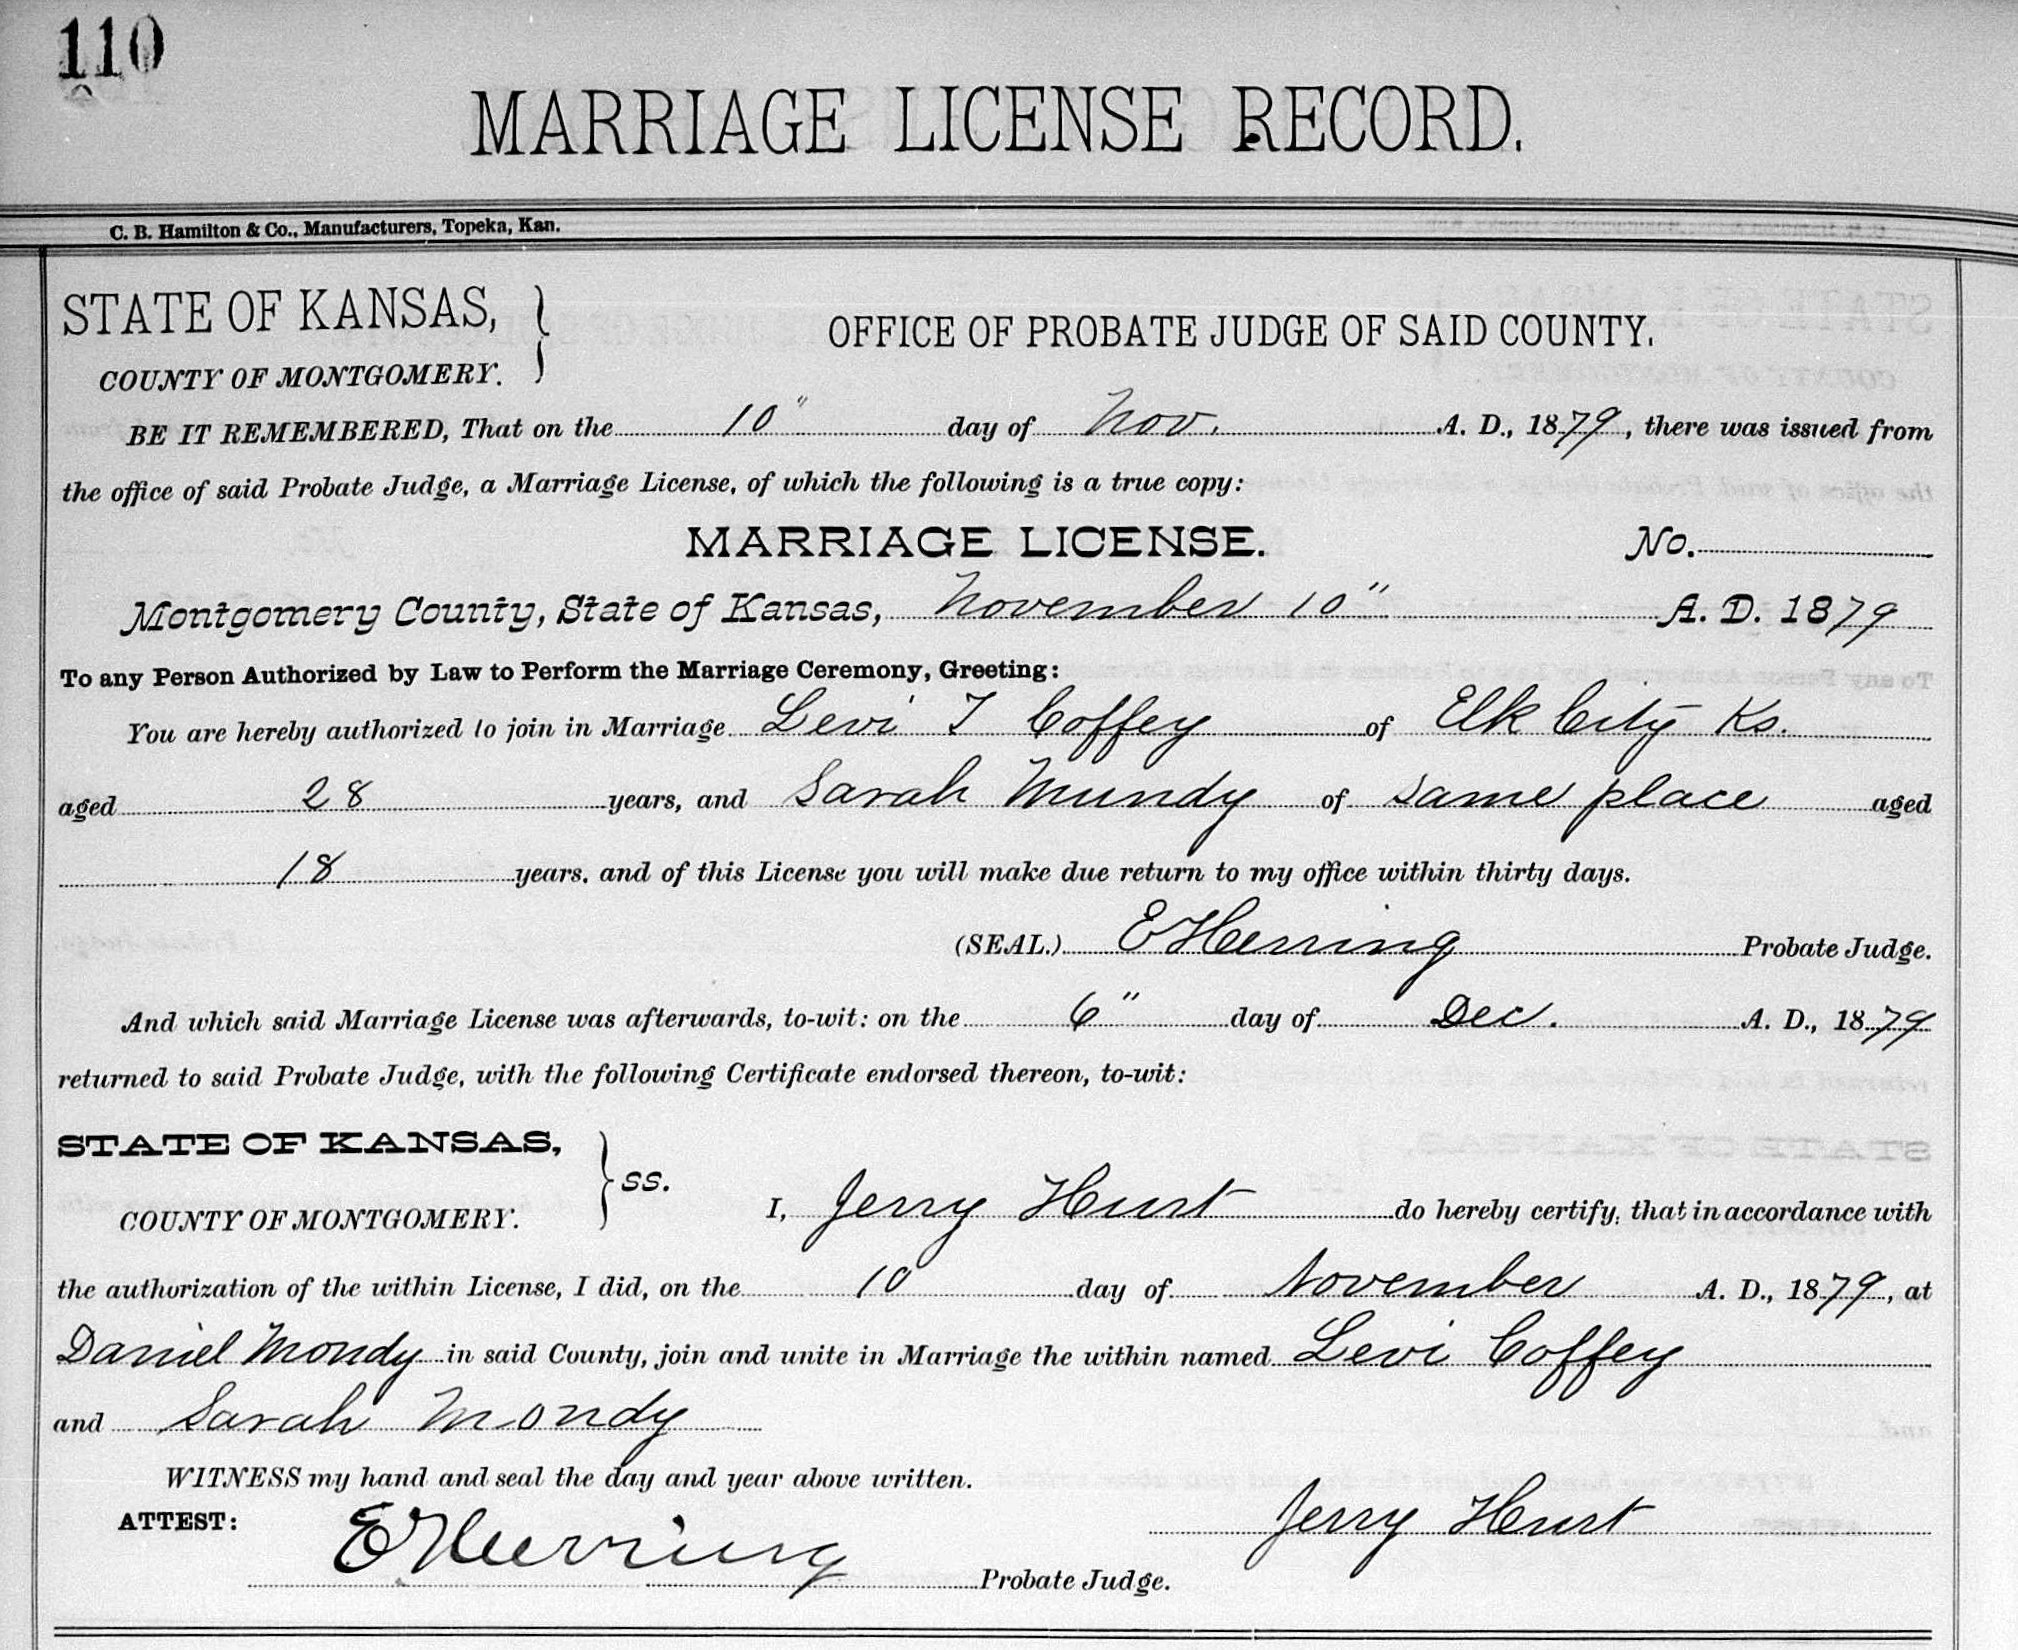 110
MARRIAGE LICENSE RECORD.
C. B. Hamilton & Co., Manufacturers, Topeka, Kan.
STATE OF KANSAS,
OFFICE OF PROBATE JUDGE OF SAID COUNTY.
COUNTY OF MONTGOMERY.
BE IT REMEMBERED, That on the 10" day of Nov. A. D., 1879, there was issued from
the office of said Probate Judge, a Marriage License, of which the following is a true copy:
MARRIAGE LICENSE. No.
Montgomery County, State of Kansas, November 10" A. D. 1879
To any Person Authorized by Law to Perform the Marriage Ceremony, Greeting:
You are hereby authorized to join in Marriage Levi T Coffey of Elk City Ks.
aged 28 years, and Sarah Mundy of same place aged
18 years, and of this License you will make due return to my office within thirty days.
(SEAL.) E Herring Probate Judge.
And which said Marriage License was afterwards, to-wit: on the 6" day of Dec. A. D., 1879
returned to said Probate Judge, with the following Certificate endorsed thereon, to-wit:
STATE OF KANSAS,
ss.
COUNTY OF MONTGOMERY.
I, Jerry Hurst do hereby certify, that in accordance with
the authorization of the within License, I did, on the 10 day of November A. D., 1879, at
Daniel Mondy in said County, join and unite in Marriage the within named Levi Coffey
and Sarah Mondy
WITNESS my hand and seal the day and year above written.
ATTEST:
Jerry Hurst
E Herring Probate Judge.